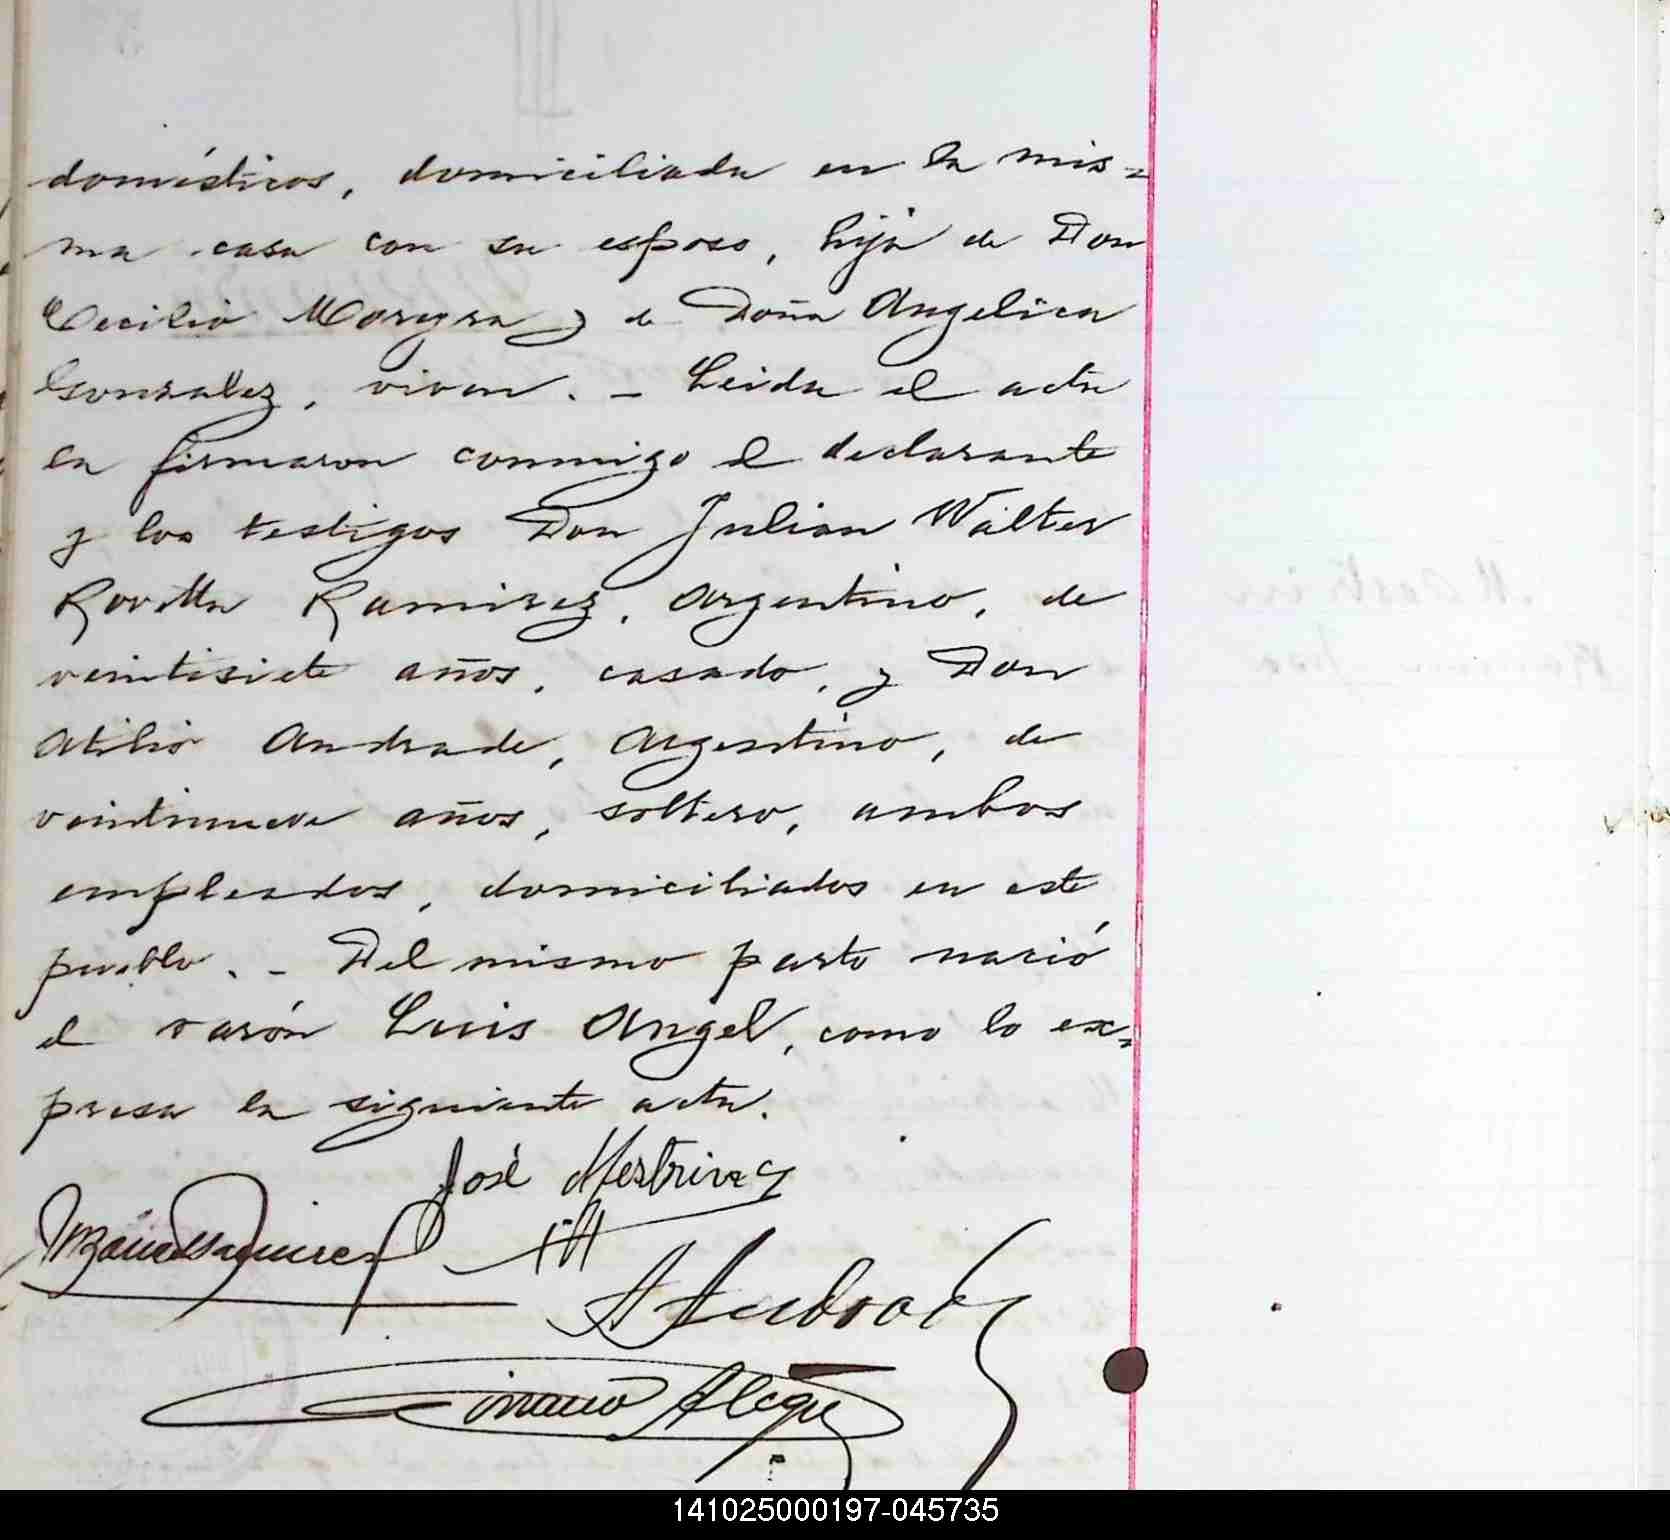 domésticos, domiciliada en la mis=
ma casa con su esposo, hija de Don
Cecilio Moreyra y de Doña Angelica
Gonzalez, viven. - Leida el acta
la firmaron conmigo el declarante
y los testigos Don Julian Walter
Rovetta Ramirez, Argentino, de
veintisiete años, casado, y Don
Atilio Andrade, Argentino, de
veintinueve años, soltero, ambos
empleados, domiciliados en este
pueblo. - Del mismo parto nació
el varón Luis Angel, como lo ex=
presa la siguiente acta.
José Mestriner
A Andrade
Alegre
141025000197-045735